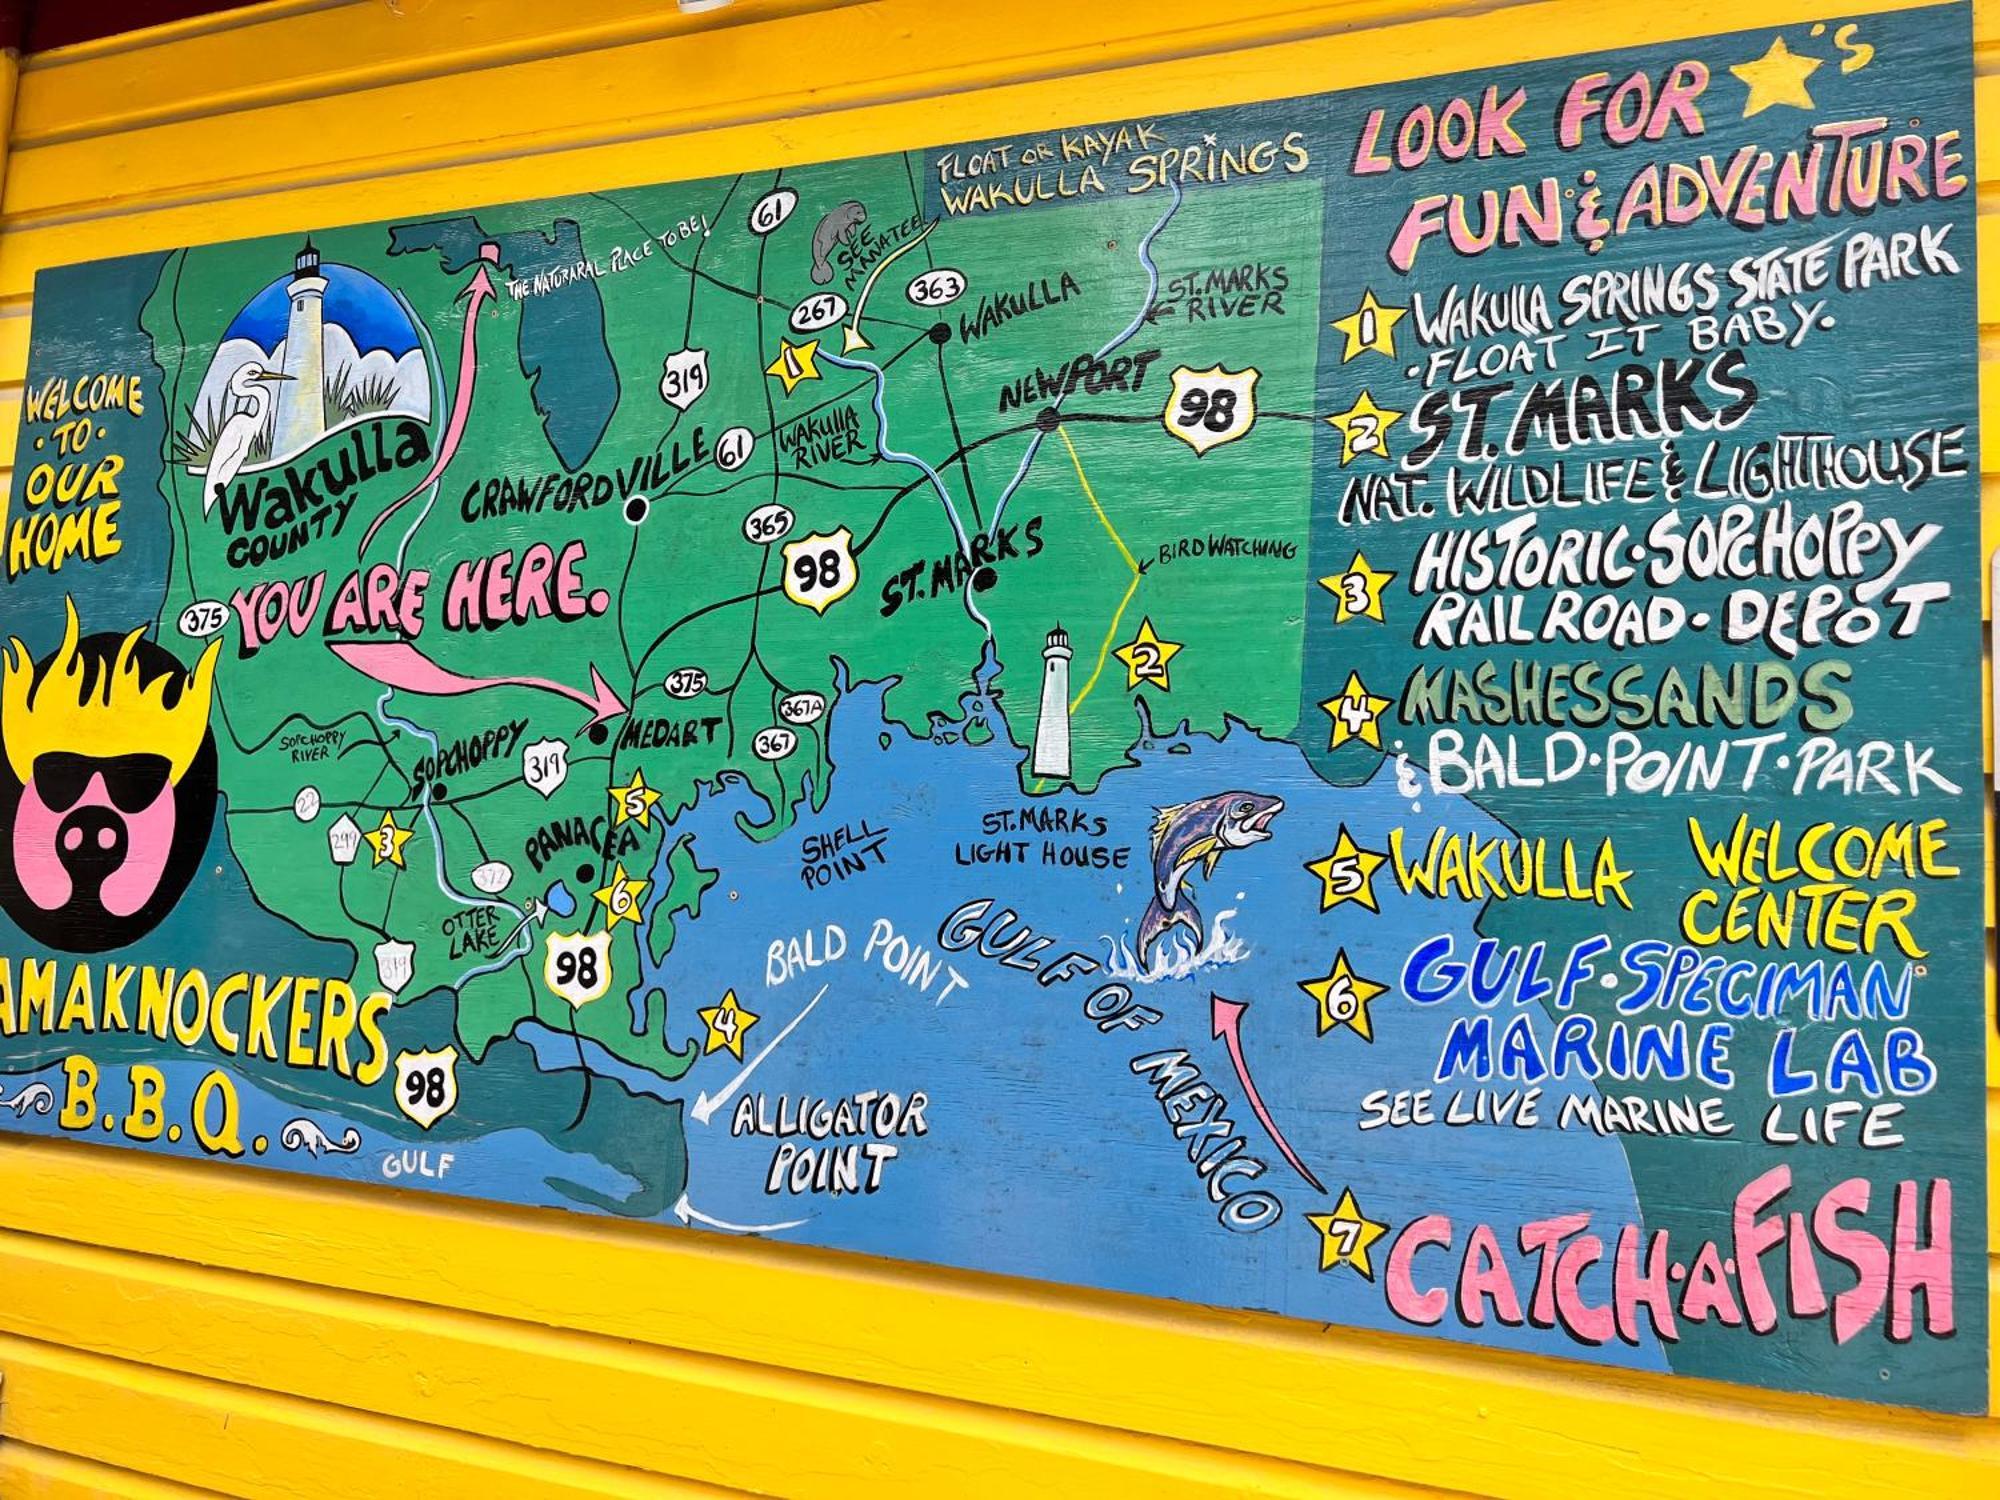 WELCOME
·TO·
OUR
HOME
AMAKNOCKERS
B.B.Q.
Wakulla
COUNTY
THE NATURARAL PLACE TO BE!
YOU ARE HERE.
FLOAT OR KAYAK
WAKULLA SPRINGS
SEE
MANATEE
61
267
363
WAKULLA
ST. MARKS
RIVER
319
1
NEWPORT
98
WAKULLA
RIVER
61
CRAWFORDVILLE
365
98
ST. MARKS
BIRD WATCHING
2
375
375
MEDART
367A
367
SOPCHOPPY
RIVER
SOPCHOPPY
319
22
299
3
5
PANACEA
372
6
OTTER
LAKE
319
98
98
GULF
SHELL
POINT
ST. MARKS
LIGHT HOUSE
BALD POINT
4
ALLIGATOR
POINT
GULF OF MEXICO
LOOK FOR 'S
FUN & ADVENTURE
1 WAKULLA SPRINGS STATE PARK
·FLOAT IT BABY.
2 ST. MARKS
NAT. WILDLIFE & LIGHTHOUSE
3 HISTORIC·SOPCHOPPY
RAIL ROAD·DEPOT
4 MASHESSANDS
& BALD·POINT·PARK
5 WAKULLA WELCOME
CENTER
6 GULF·SPECIMAN
MARINE LAB
SEE LIVE MARINE LIFE
7 CATCH·A·FISH